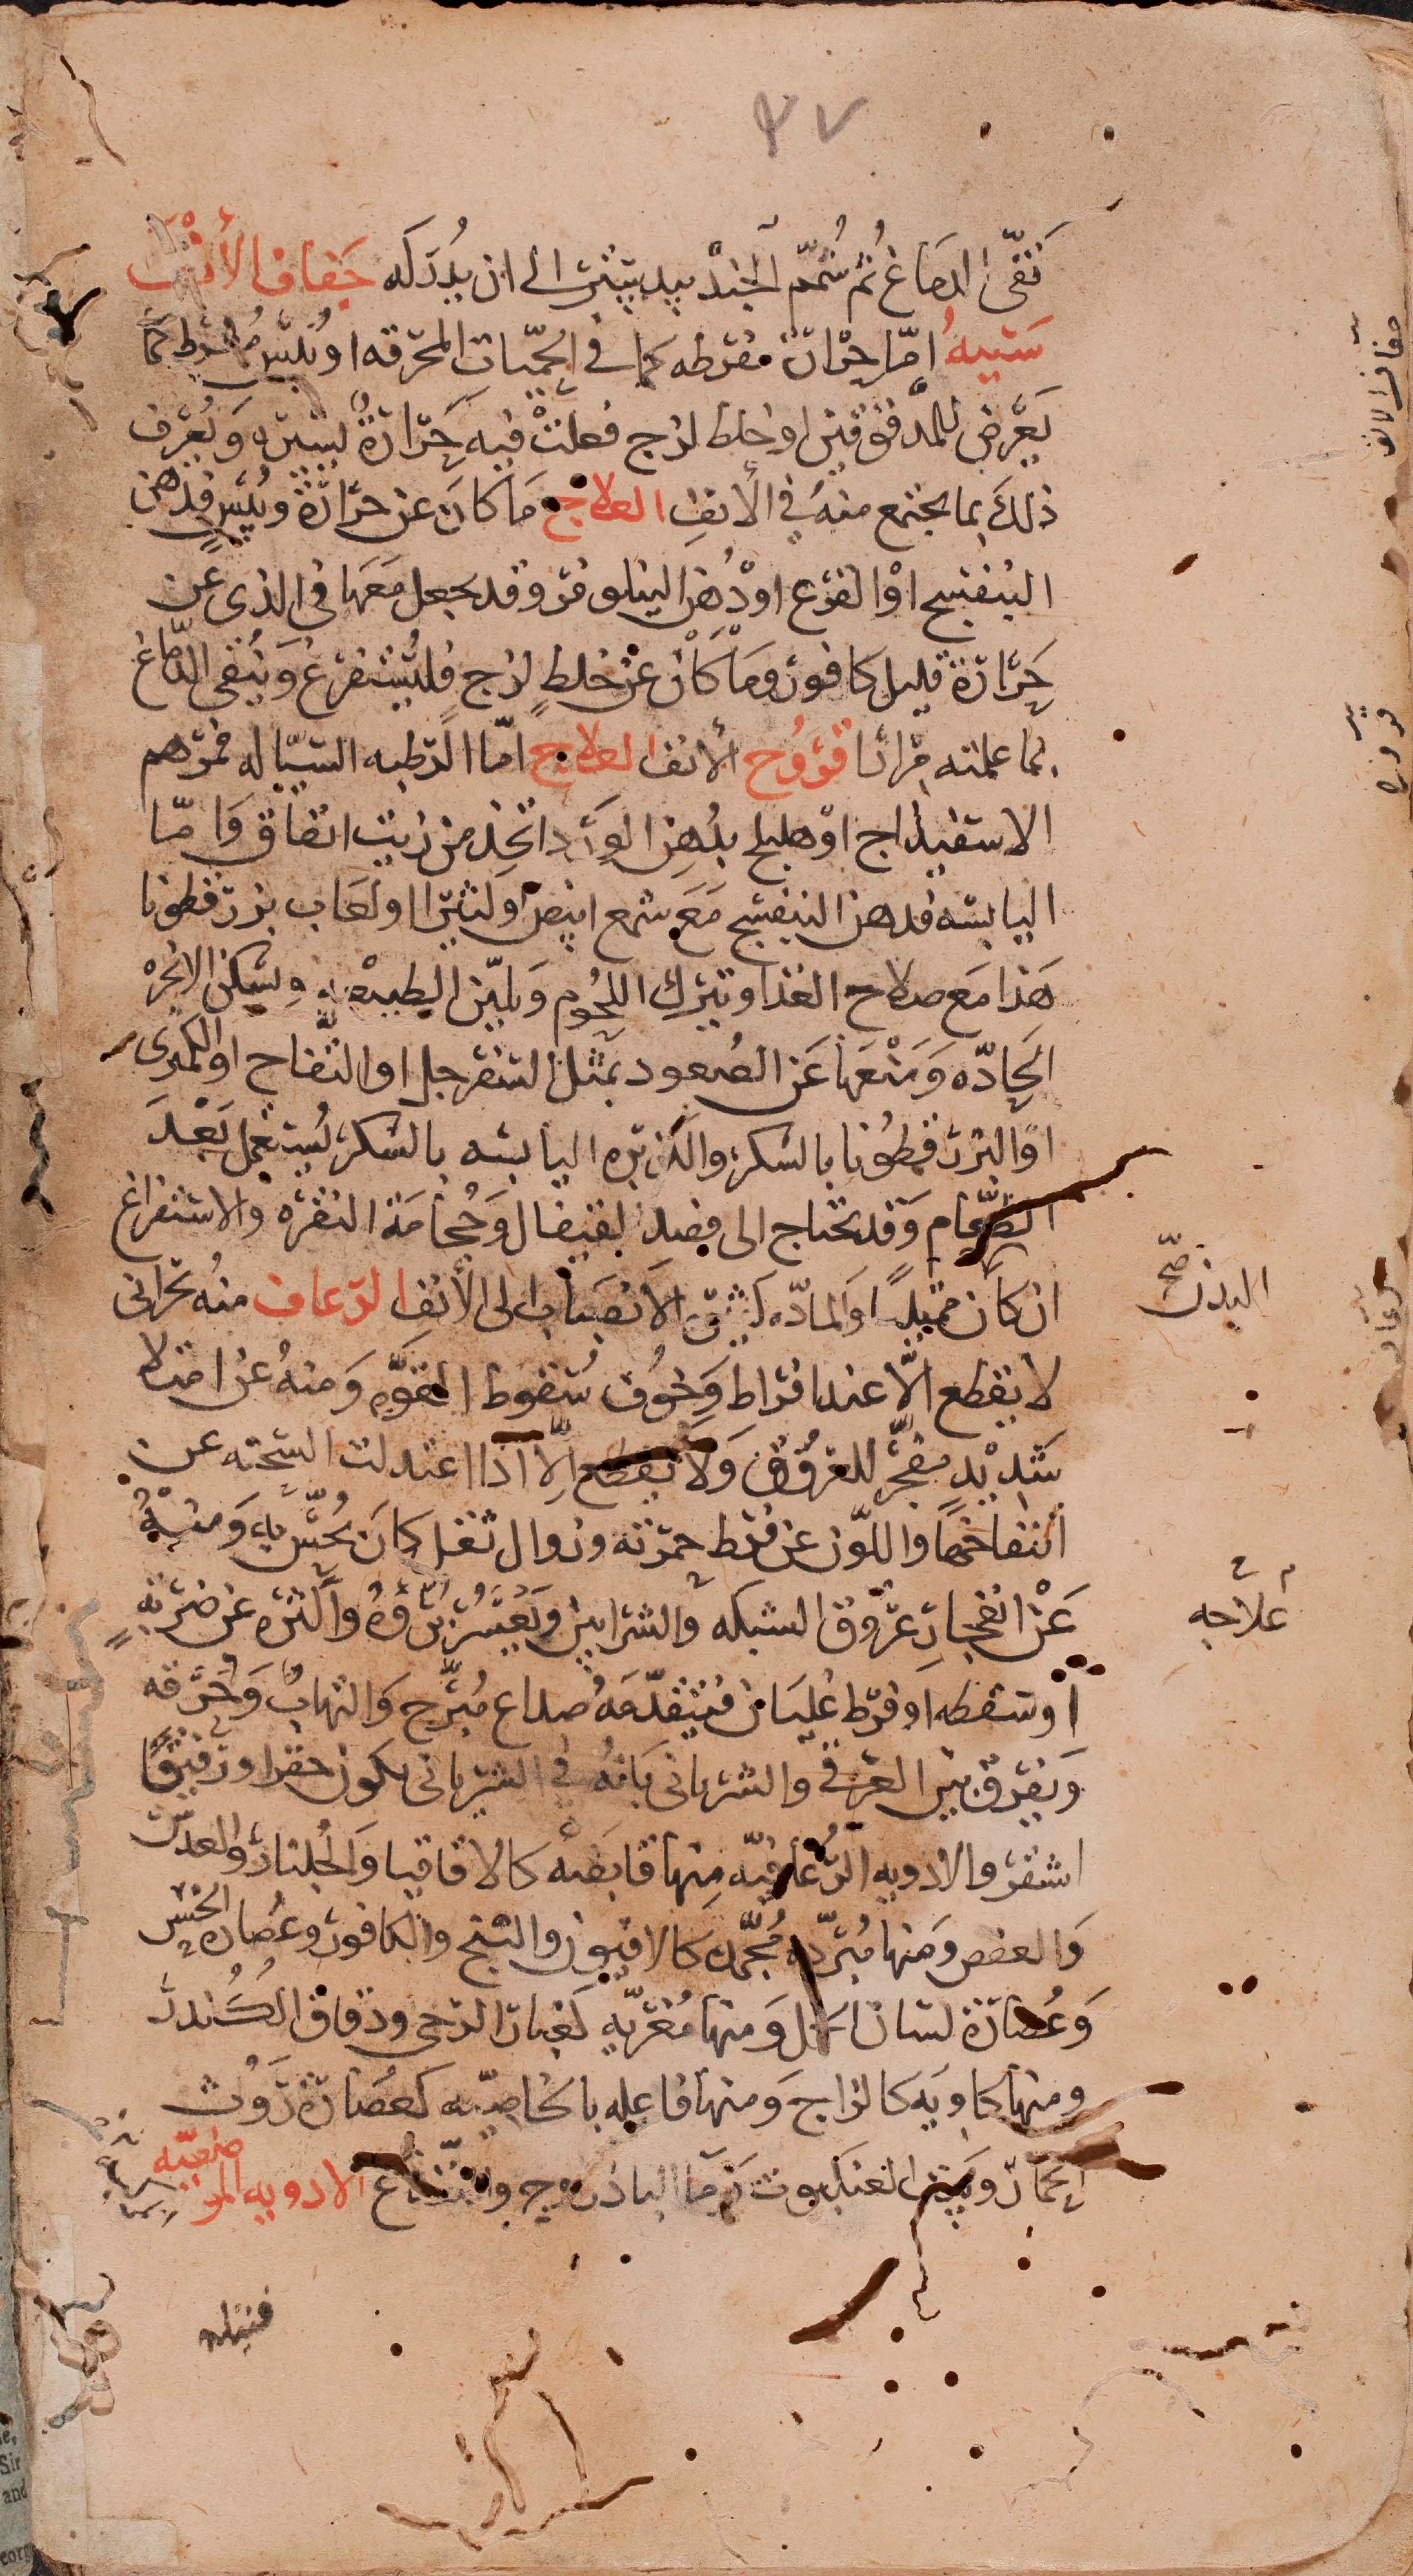 ٣٧
نَقّى الدمَاغ ثم شُمّم الجُنْدبيدستر الى ان يُدرَكه جَفاف الأنف
سَبَبهُ امّا حرارة مفرطه كما في الحمّيات المحرقه او يُبس مُفرط كما
يَعرض للمدقوقين او خلط لزج فعلتْ فيه حَرَارةٌ يسيره وَيُعرف
ذلكَ بما يجتمع منهُ في الأنفِ العلاج مَا كانَ عن حَرَارةٍ ويُبسٍ فدهن
البنفسج او القرع او دُهن النيلوفر وقد يجعل مَعَها في الذي عن
حَرَارة قليل كافور ومَا كَانَ عَنْ خلطٍ لزج فليُستفرغ وَيُنقى الدّماغ
بما علمته مرارًا قروُح الأنف العلاج امّا الرّطبه السّيّاله فمرهم
الاسفيداج او هليلج بدُهن الوَرد اتّخذ من زيت انفاق وَامّا
اليابسه فدهن البنفسج مَعَ شمع ابيض او كثيرا او لعَاب بزرقطونا
هَذا مَع صلاح الغذا وترك اللحُوم وَتليين الطبيعَه وتسكين الابخره
الحادّه وَمَنْعهَا عَن الصُعود بمثل السفرجل او التّفاح او الكمثرى
او البزرقطُونا بالسكر والكزبره اليابسه بالسّكر يُستعمل بَعْدَ
الطّعَام وَقد يحتاج الى فصد القيفال وَحُجَامَة النقره والاستفراغ
ان كَان ممتليًا وَالمادّه كثيرة الانصباب الى الأنفِ الرّعاف منهُ بحرانى
البدن صحّ
لا يقطع الّا عند افراط وَخوُف سُقوط القوَّه وَمنهُ عن امتلا
شَدِيْدٍ مفجّر للعرُوُق وَلا يقطع الّا اذا اعتدلت السّحنه عن
انتفاخها واللّون عن فرط حمرته وزوال ثقل كَانَ يُحسّ بهِ وَمنْهُ
عَنْ انفجَارِ عرُوق الشبكه والشرايين وَيَعسُر بُرؤهُ واكثره عن ضربَهٍ
علاجه
او سَقطه او فرط غليَان فيتقدّمَهُ صداع مُبرّح وَالتهابُ وَحُرقه
وَيفرق بين العرقى والشريانى بَانّهُ في الشريانى يكون حفزا ورَقيقًا
اشقر والادويه الرُعافيّه مِنها قابضَه كالاقاقيا وَالجُلنار والعدس
وَالعفص وَمنها مُبرّده مُجمّده كالافيون والبنج والكافور وعُصارة الخسّ
وَعُصَارة لسان الحمل وَمنها مُغريّه كغبار الرحى ودقاق الكُندر
ومنها كاوِيَه كالزاج وَمنها فاعله بالخاصيّه كعُصَارَة رَوُث
الحمَار وبيت العنكبوت وَمَا الباذروج والنّعناع الادويه الموضعيّه
فتيله
جفاف الانف
قروح
رعاف